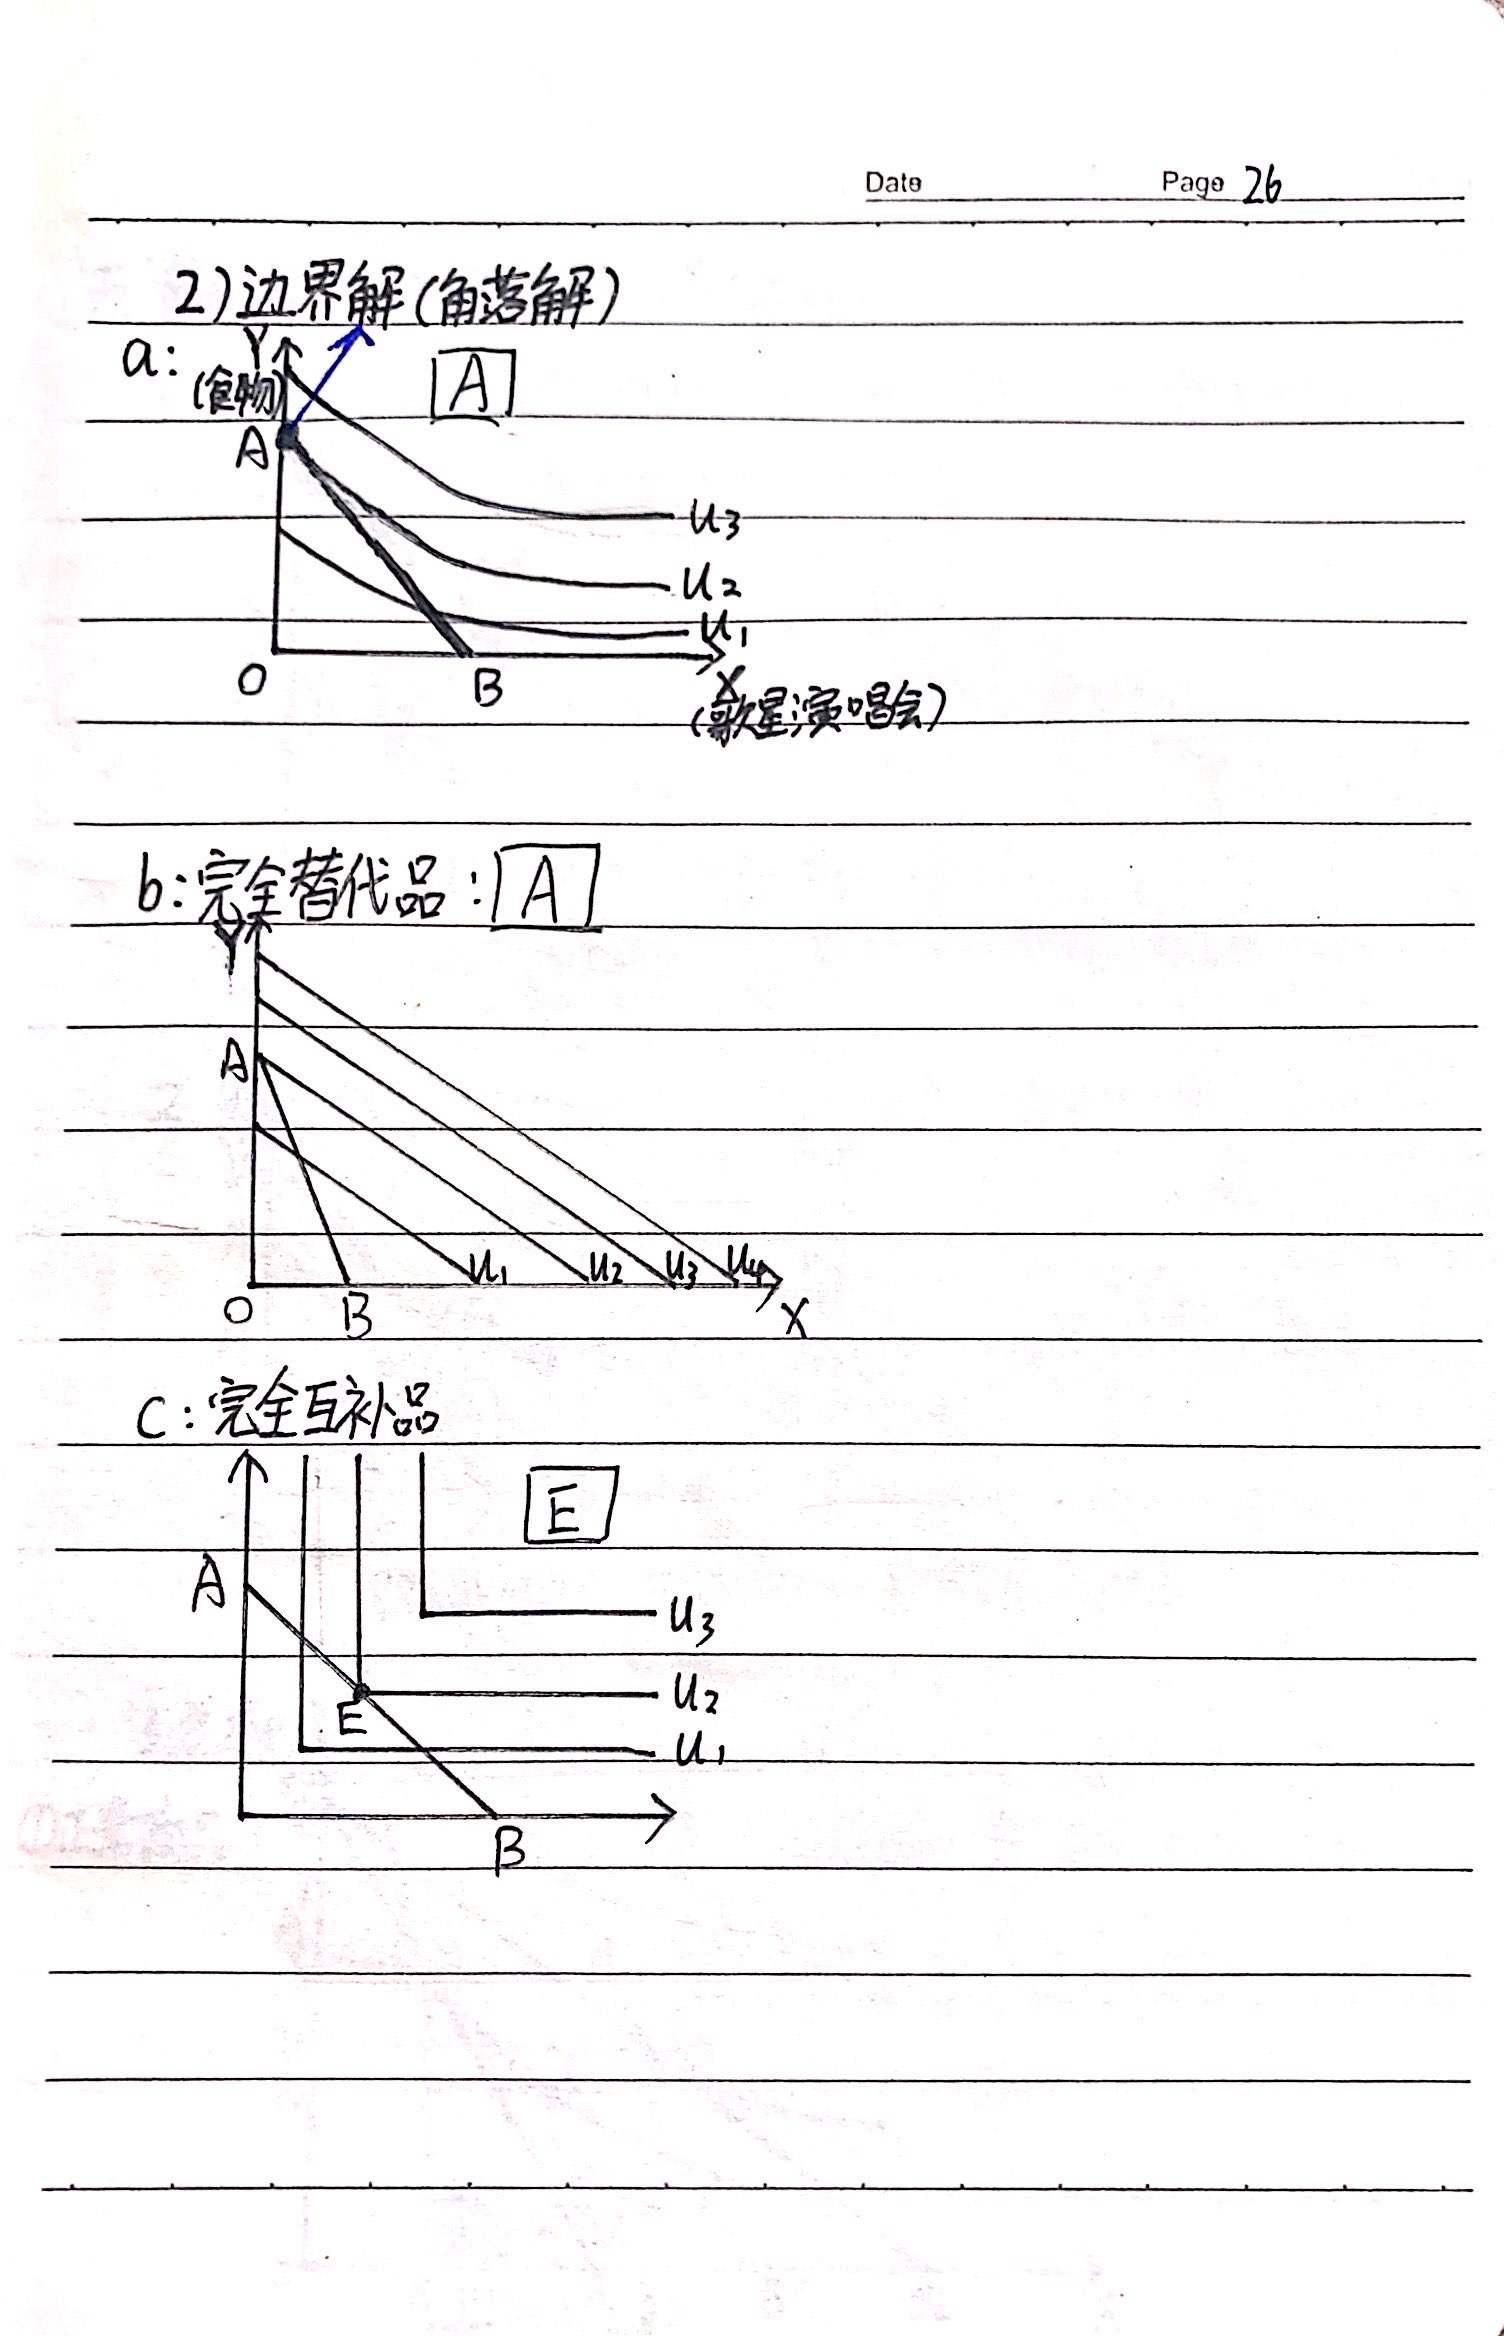 Date Page 26
2)边界解(角落解)
a: Y A
(食物)
A
u3
u2
u1
O B X
(歌星演唱会)
b:完全替代品: A
Y
A
u1 u2 u3 u4
O B X
c:完全互补品
E
A
u3
u2
E
u1
B